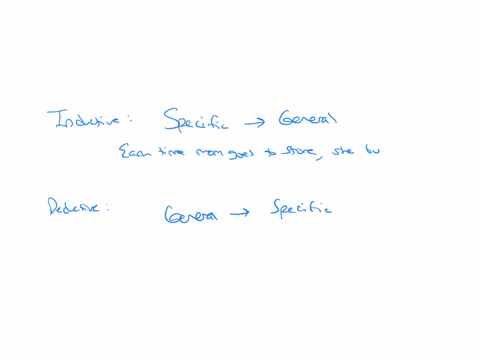 Inductive: Specific → General
Each time mom goes to store, she bu
Deductive: General → Specific